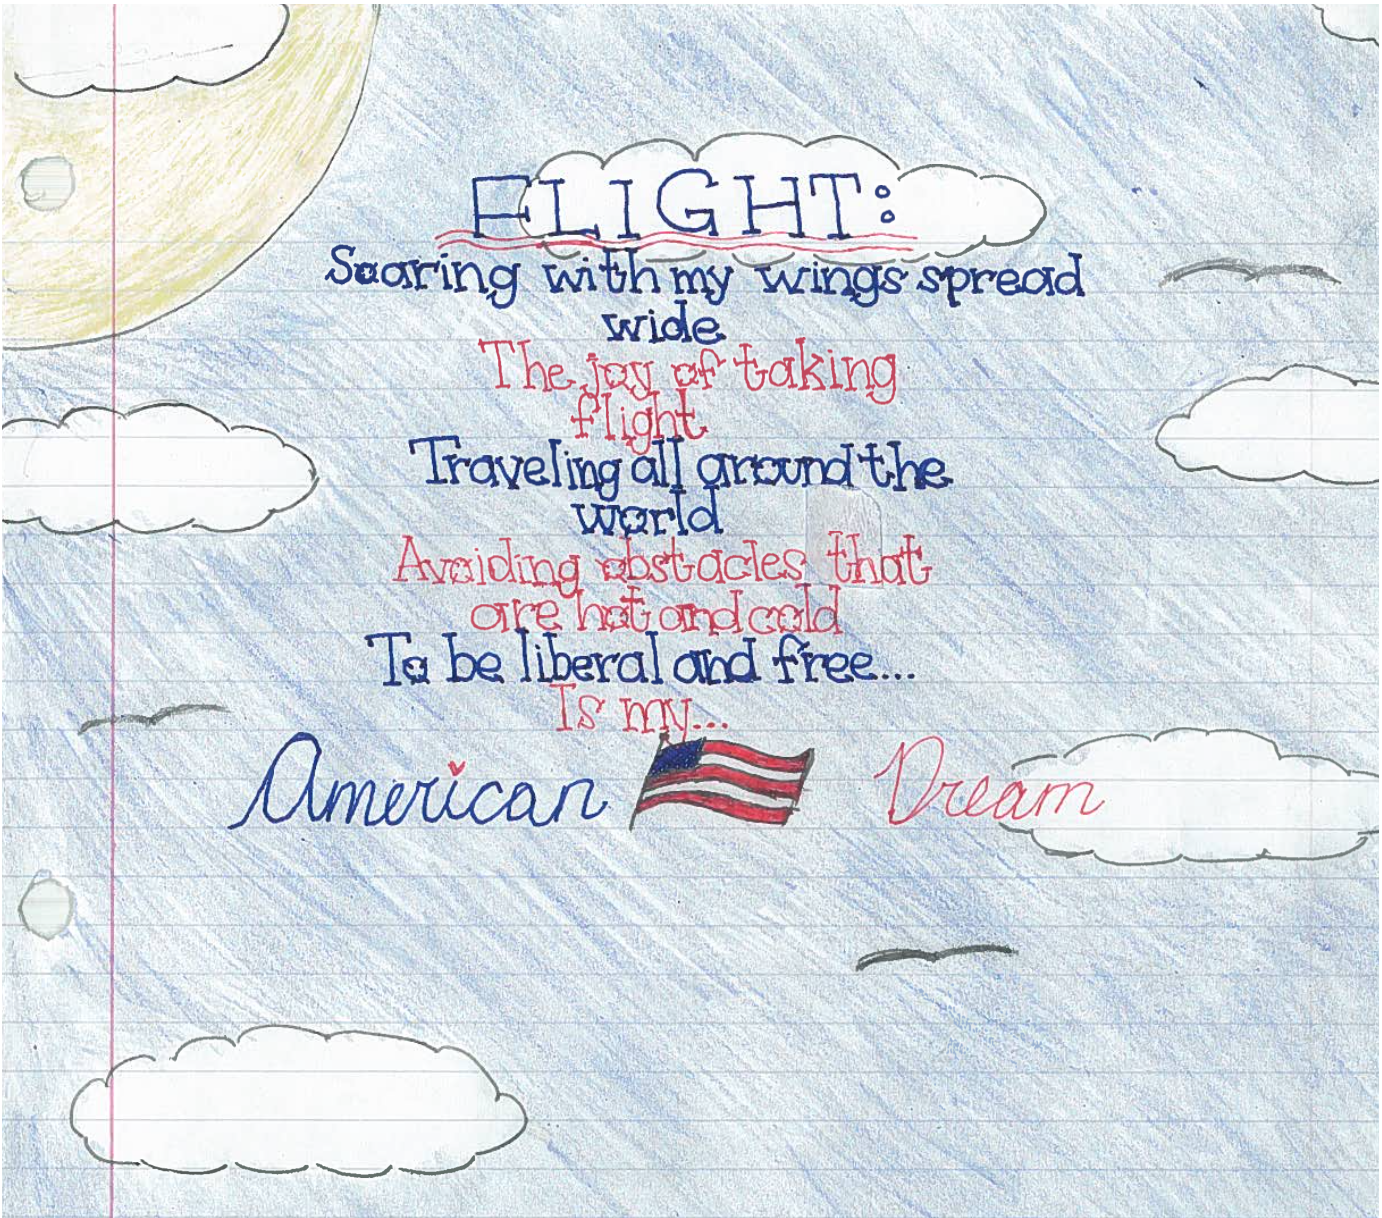 FLIGHT:
Soaring with my wings spread
wide
The joy of taking
flight
Traveling all around the
world
Avoiding obstacles that
are hot and cold
To be liberal and free...
Is my...
American Dream